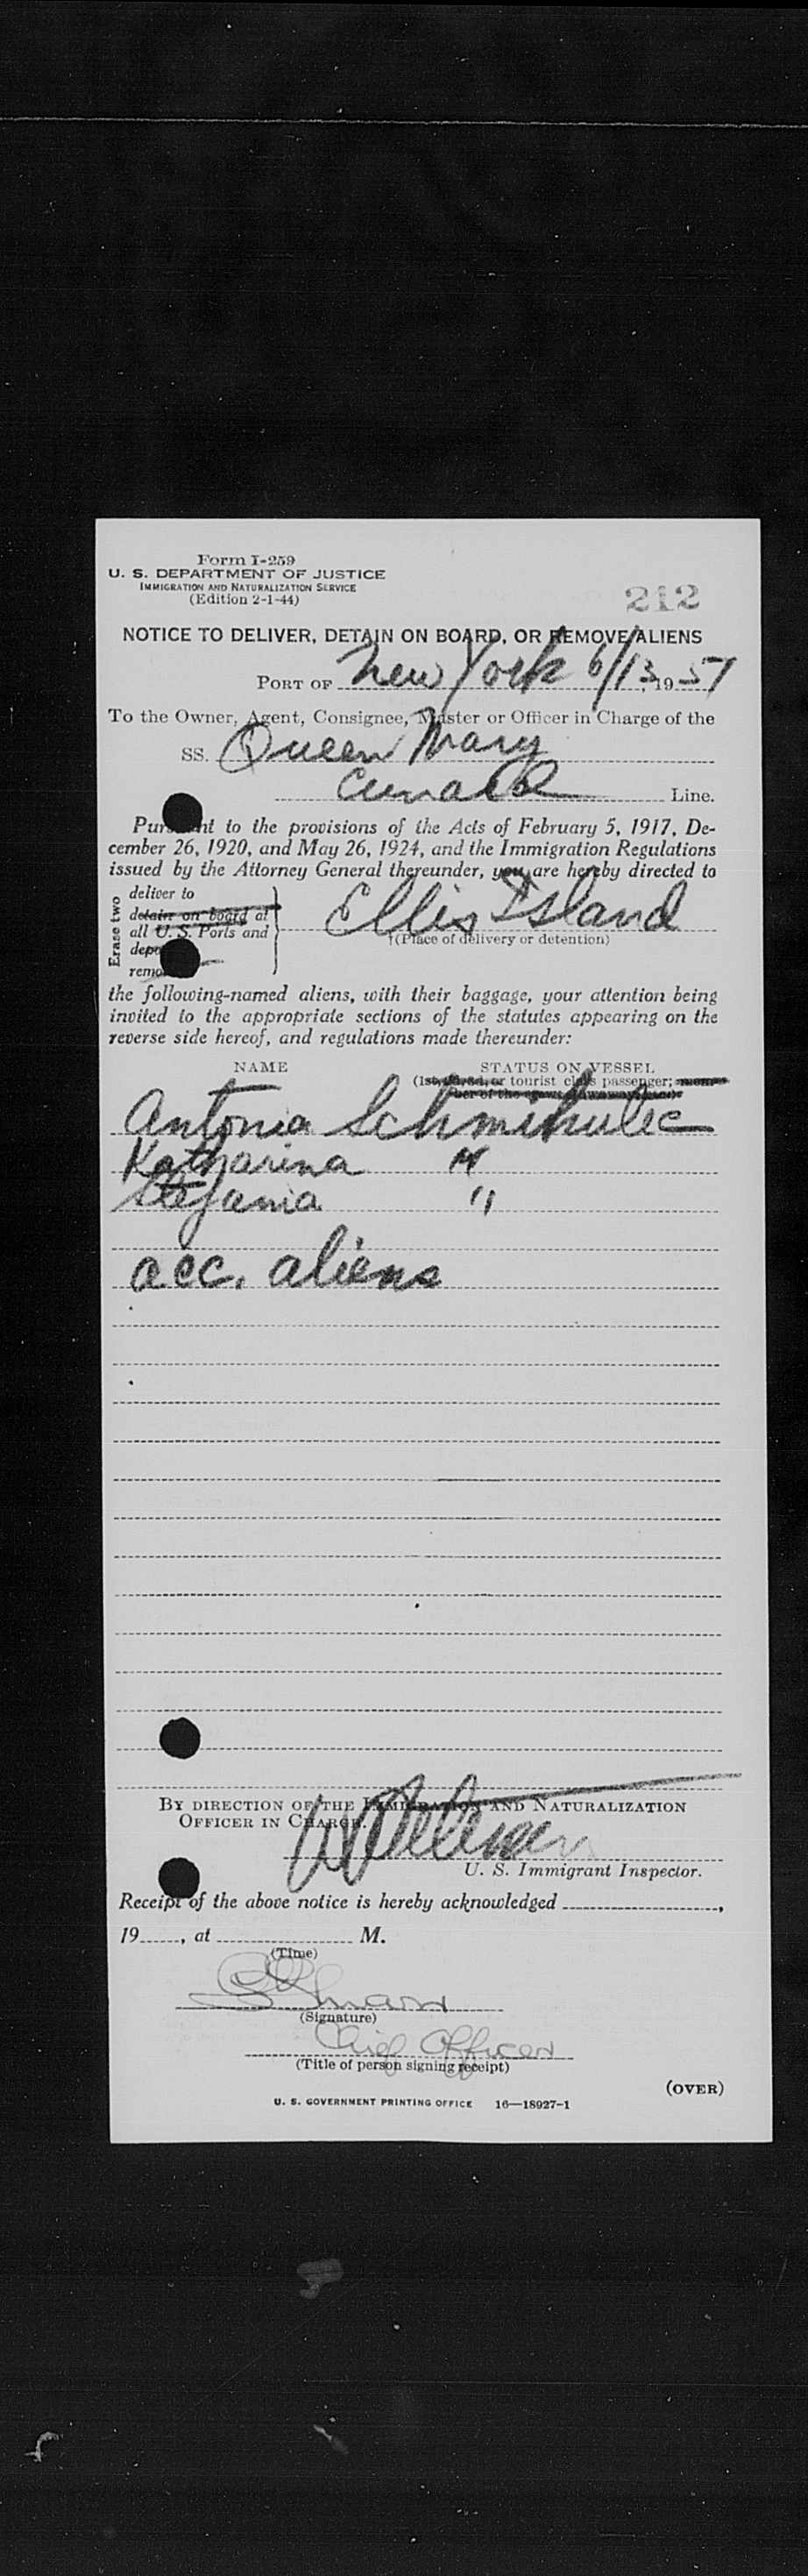 Form I-259
U. S. DEPARTMENT OF JUSTICE
IMMIGRATION AND NATURALIZATION SERVICE
(Edition 2-1-44)
212
NOTICE TO DELIVER, DETAIN ON BOARD, OR REMOVE ALIENS
PORT OF New York 6/13, 1951
To the Owner, Agent, Consignee, Master or Officer in Charge of the
SS. Queen Mary
Cunard Line.
Pursuant to the provisions of the Acts of February 5, 1917, De-
cember 26, 1920, and May 26, 1924, and the Immigration Regulations
issued by the Attorney General thereunder, you are hereby directed to
Erase two
deliver to
detain on board at
all U. S. Ports and
depo
remo
Ellis Island
†(Place of delivery or detention)
the following-named aliens, with their baggage, your attention being
invited to the appropriate sections of the statutes appearing on the
reverse side hereof, and regulations made thereunder:
NAME STATUS ON VESSEL
(1st, 2d, 3d, or tourist class passenger; mem-
ber of the
Antonia Schmihulec
Katharina "
Stefania "
acc. aliens
BY DIRECTION OF THE IMMIGRATION AND NATURALIZATION
OFFICER IN CHARGE.
U. S. Immigrant Inspector.
Receipt of the above notice is hereby acknowledged ,
19 , at M.
(Time)
(Signature)
Chief Officer
(Title of person signing receipt)
(OVER)
U. S. GOVERNMENT PRINTING OFFICE 16—18927-1